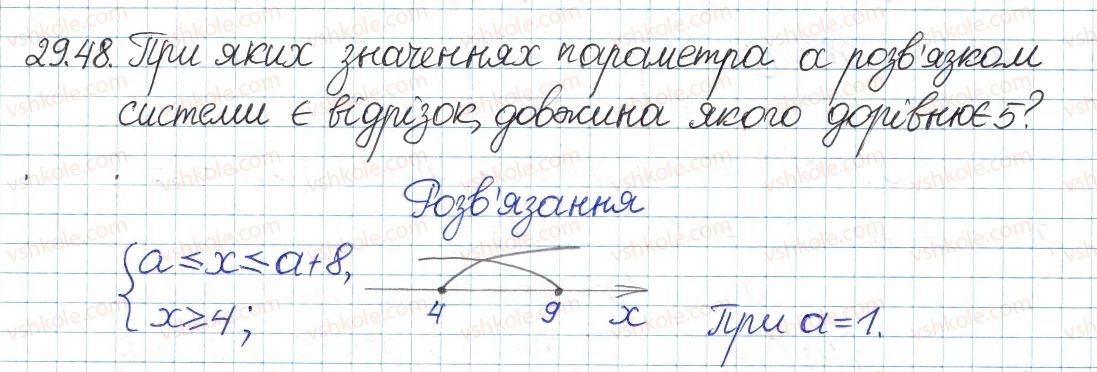 29.48. При яких значеннях параметра a розв'язком
системи є відрізок, довжина якого дорівнює 5?
Розв'язання
{a ≤ x ≤ a+8,
x ≥ 4;
4 9 x
При a=1.